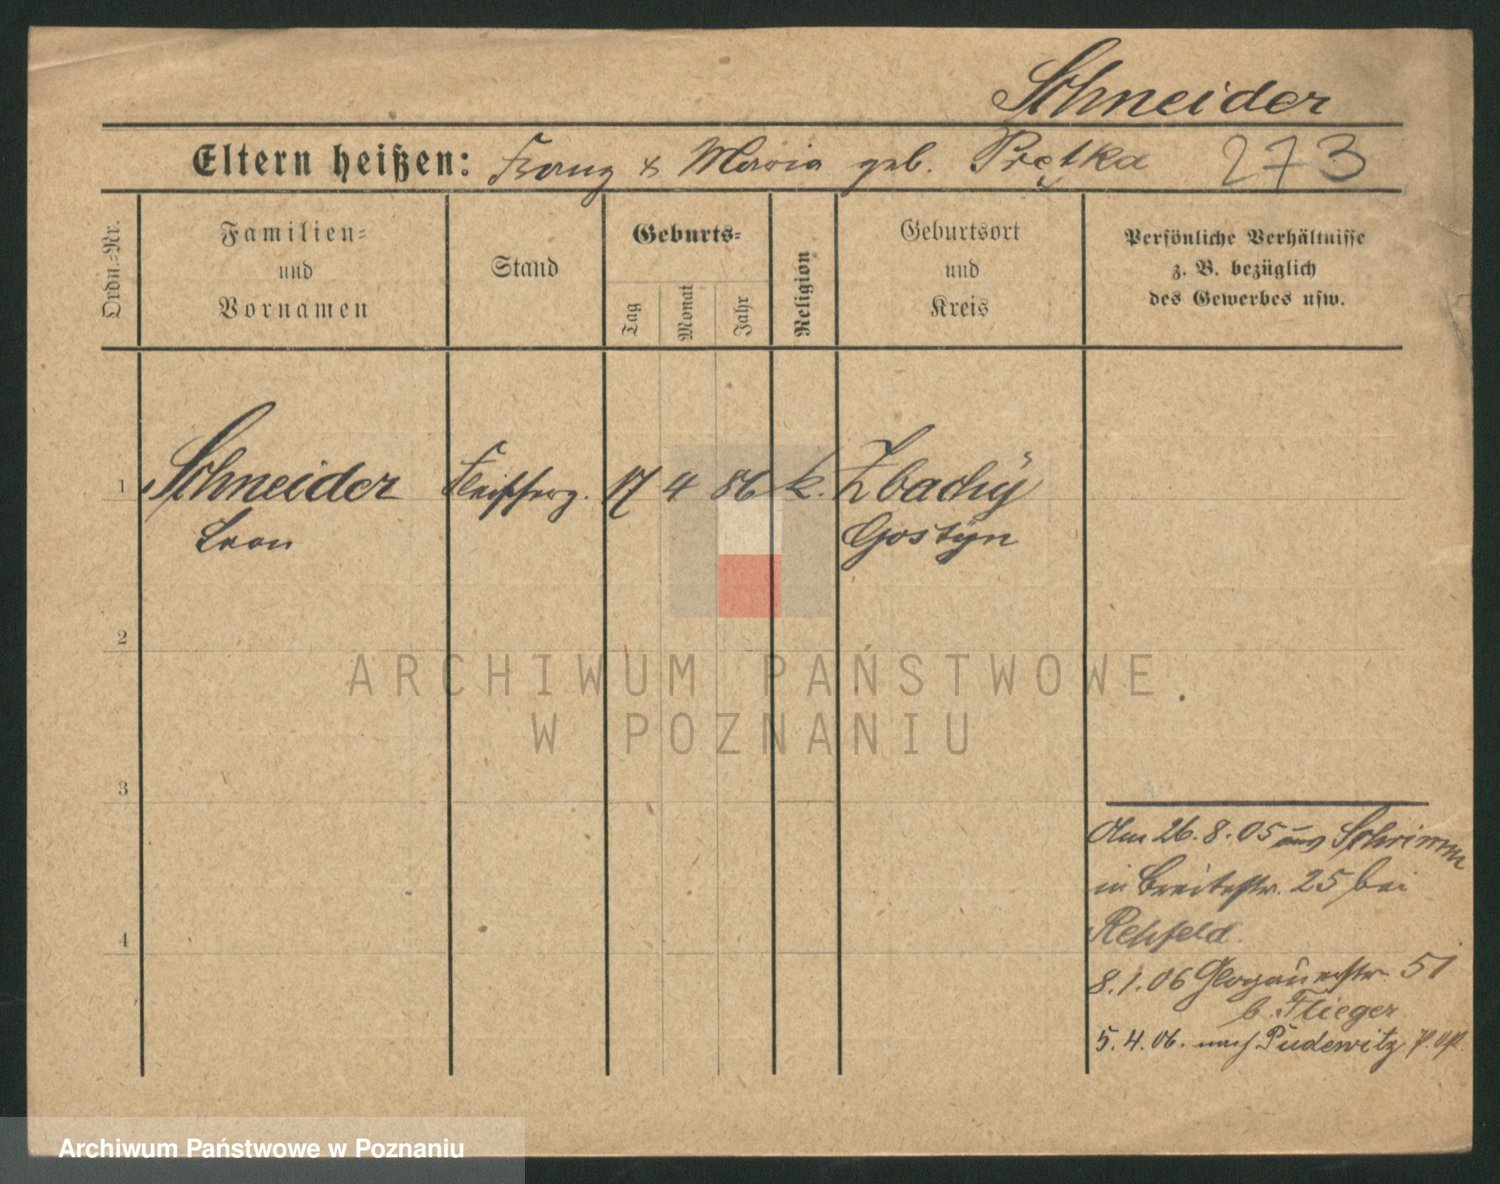 Schneider
Eltern heißen: Franz & Maria geb. Prętka 273
Ordn.=Nr.
Familien=
und
Vornamen
Stand
Geburts=
Tag
Monat
Jahr
Religion
Geburtsort
und
Kreis
Persönliche Verhältnisse
z. B. bezüglich
des Gewerbes usw.
1 Schneider Fleischerg. 17 4 86 k. Zbachÿ
Leon Gostÿn
2
3
4
Am 26.8.05 aus Schrimm
in Breitestr. 25 bei
Rehfeld.
8.1.06 Glogauerstr. 51
b. Flieger
5.4.06. nach Pudewitz
ARCHIWUM PAŃSTWOWE
W POZNANIU
Archiwum Państwowe w Poznaniu